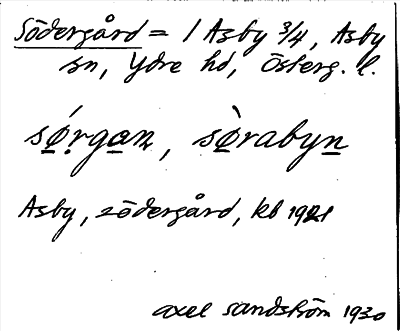 Södergård = 1 Asby 3/4, Asby
sn, Ydre hd, Österg. l.
sǿ̱ṛga̱n, sø̱̀rabyṉ
Asby, södergård, kb 1921
axel sandström 1930